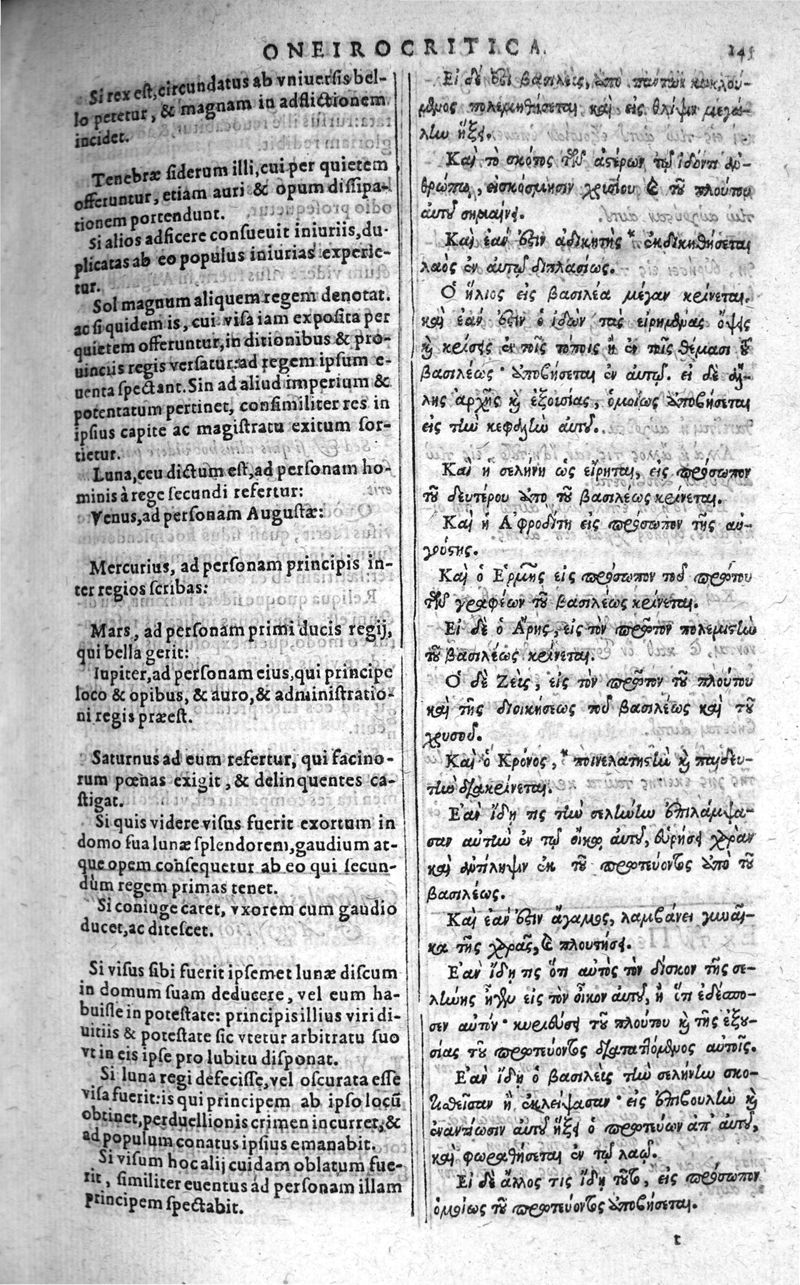 ONEIROCRITICA. 145
Si rex est, circundatus ab vniuersis bel-
lo petetur, & magnam in adflictionem
incidet.
Tenebræ siderum illi, cui per quietem
offeruntur, etiam auri & opum dissipa-
tionem portendunt.
Si alios adficere consueuit iniuriis, du-
plicatas ab eo populus iniurias experie-
tur.
Sol magnum aliquem regem denotat.
ac si quidem is, cui visa iam exposita per
quietem offeruntur, in ditionibus & pro-
uinciis regis versatur: ad regem ipsum e-
uenta spectant. Sin ad aliud imperium &
potentatum pertinet, consimiliter res in
ipsius capite ac magistratu exitum sor-
tietur.
Luna, ceu dictum est, ad personam ho-
minis à rege secundi refertur:
Venus, ad personam Augustæ:
Mercurius, ad personam principis in-
ter regios scribas:
Mars, ad personam primi ducis regij,
qui bella gerit:
Iupiter, ad personam eius, qui principe
loco & opibus, & auro, & administratio-
ni regis præest.
Saturnus ad eum refertur, qui facino-
rum pœnas exigit, & delinquentes ca-
stigat.
Si quis videre visus fuerit exortum in
domo sua lunæ splendorem, gaudium at-
que opem consequetur ab eo qui secun-
dùm regem primas tenet.
Si coniuge caret, vxorem cum gaudio
ducet, ac ditescet.
Si visus sibi fuerit ipsemet lunæ discum
in domum suam deducere, vel eum ha-
buisse in potestate: principis illius viri di-
uitiis & potestate sic vtetur arbitratu suo
vt in eis ipse pro lubitu disponat.
Si luna regi defecisse, vel oscurata esse
visa fuerit: is qui principem ab ipso locũ
obtinet, perduellionis crimen incurret, &
ad populum conatus ipsius emanabit.
Si visum hoc alij cuidam oblatum fue-
rit, similiter euentus ad personam illam
principem spectabit.
Εἰ δέ ἐστι βασιλεὺς, ὑπὸ πάντων κυκλού-
μενος πολεμηθήσεται καὶ εἰς θλίψιν μεγά-
λην ἥξει.
Καὶ τὸ σκότος τῶν ἀστέρων τῷ ἰδόντι ἀν-
θρώπῳ, εἰσκόσμησιν χρυσίου καὶ τοῦ πλούτου
αὐτοῦ σημαίνει.
Καὶ ἐάν ἐστιν ἀδικητὴς * ἐκδικηθήσεται
λαὸς ἐν αὐτῷ διπλασίως.
Ὁ ἥλιος εἰς βασιλέα μέγαν κρίνεται.
καὶ ἐάν ἐστιν ὁ ἰδὼν τὰς εἰρημένας ὄψεις
καὶ κρίσεις ἐν τοῖς τόποις ἢ ἐν τοῖς θέμασι τοῦ
βασιλέως· ἀποβήσεται ἐν αὐτῷ. εἰ δὲ ἄλ-
λης ἀρχῆς καὶ ἐξουσίας, ὁμοίως ἀποβήσεται
εἰς τὴν κεφαλὴν αὐτοῦ.
Καὶ ἡ σελήνη ὡς εἴρηται, εἰς πρόσωπον
τοῦ δευτέρου ἀπὸ τοῦ βασιλέως κρίνεται.
Καὶ ἡ Ἀφροδίτη εἰς πρόσωπον τῆς αὐ-
γούστης.
Καὶ ὁ Ἑρμῆς εἰς πρόσωπον τοῦ πρώτου
τῶν γραφέων τοῦ βασιλέως κρίνεται.
Εἰ δὲ ὁ Ἄρης, εἰς τὸν πρῶτον πολεμιστὴν
τοῦ βασιλέως κρίνεται.
Ὁ δὲ Ζεὺς, εἰς τὸν πρῶτον τοῦ πλούτου
καὶ τῆς διοικήσεως τοῦ βασιλέως καὶ τοῦ
χρυσοῦ.
Καὶ ὁ Κρόνος, * ποινελάτην καὶ παιδευ-
τὴν διακρίνεται.
Ἐὰν ἴδῃ τις τὴν σελήνην ἐπιλάμψα-
σαν αὐτὴν ἐν τῷ οἴκῳ αὐτοῦ, εὑρήσει χαρὰν
καὶ ἀντίληψιν ἐκ τοῦ πρωτεύοντος ἀπὸ τοῦ
βασιλέως.
Καὶ ἐάν ἐστιν ἄγαμος, λαμβάνει γυναῖ-
κα τῆς χαρᾶς, καὶ πλουτήσει.
Ἐὰν ἴδῃ τις ὅτι αὐτὸς τὸν δίσκον τῆς σε-
λήνης ἦγεν εἰς τὸν οἶκον αὐτοῦ, ἢ ὅτι ἐδέσπο-
σεν αὐτόν· κυριεύσει τοῦ πλούτου καὶ τῆς ἐξου-
σίας τοῦ πρωτεύοντος διαταττόμενος αὐτοῖς.
Ἐὰν ἴδῃ ὁ βασιλεὺς τὴν σελήνην σκο-
τισθεῖσαν ἢ ἐκλείψασαν· εἰς ἐπιβουλὴν καὶ
ἐναντίωσιν αὐτοῦ ἥξει ὁ πρωτεύων ἀπ' αὐτοῦ,
καὶ φωραθήσεται ἐν τῷ λαῷ.
Εἰ δὲ ἄλλος τις ἴδῃ τοῦτο, εἰς πρόσωπον
ὁμοίως τοῦ πρωτεύοντος ἀποβήσεται.
t